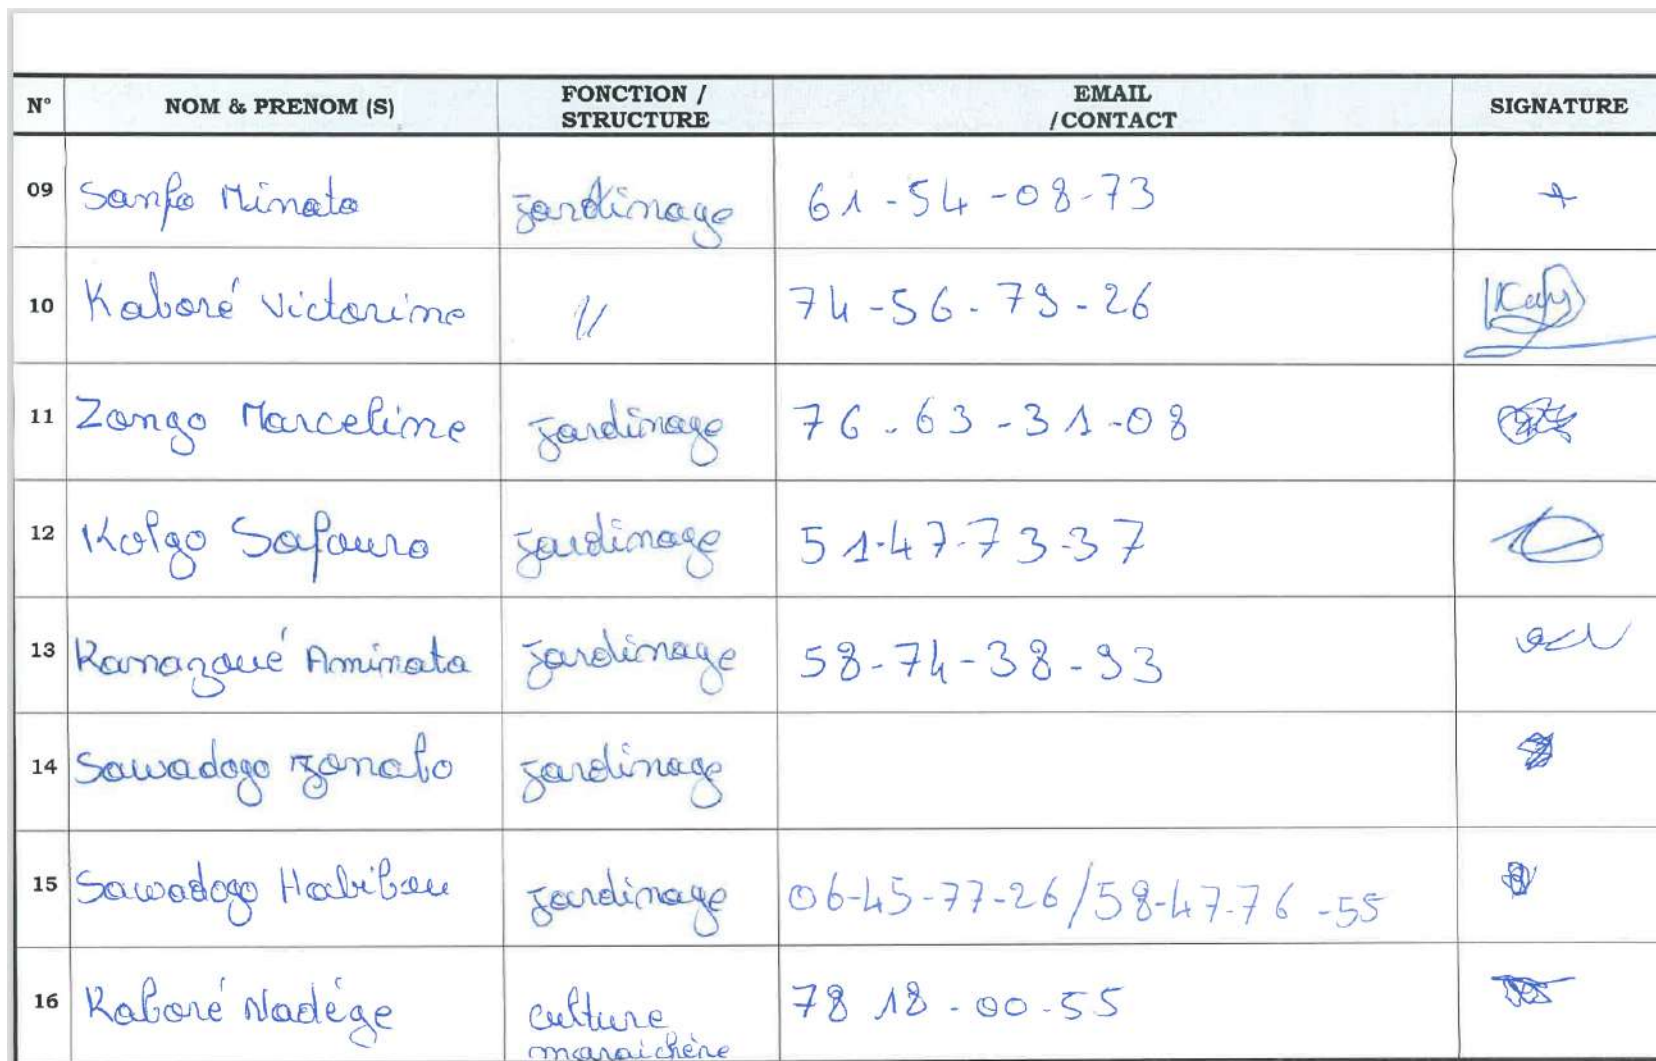 N° NOM & PRENOM (S) FONCTION / STRUCTURE EMAIL /CONTACT SIGNATURE
09 Sanfo Minata jardinage 61-54-08-73
10 Kaboré Victorine 11 74-56-79-26
11 Zongo Marceline jardinage 76-63-31-08
12 Kolgo Safoura jardinage 51-47-73-37
13 Kanazoué Aminata jardinage 58-74-38-93
14 Sawadogo Zonabo jardinage
15 Sawadogo Habibou jardinage 06-45-77-26/58-47-76-55
16 Kaboré Nadége culture maraichère 78 18-00-55